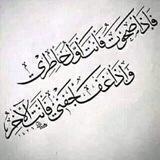 فإذا صحوت فأنت أول خاطري
وإذا غفا جفني فأنت الآخر